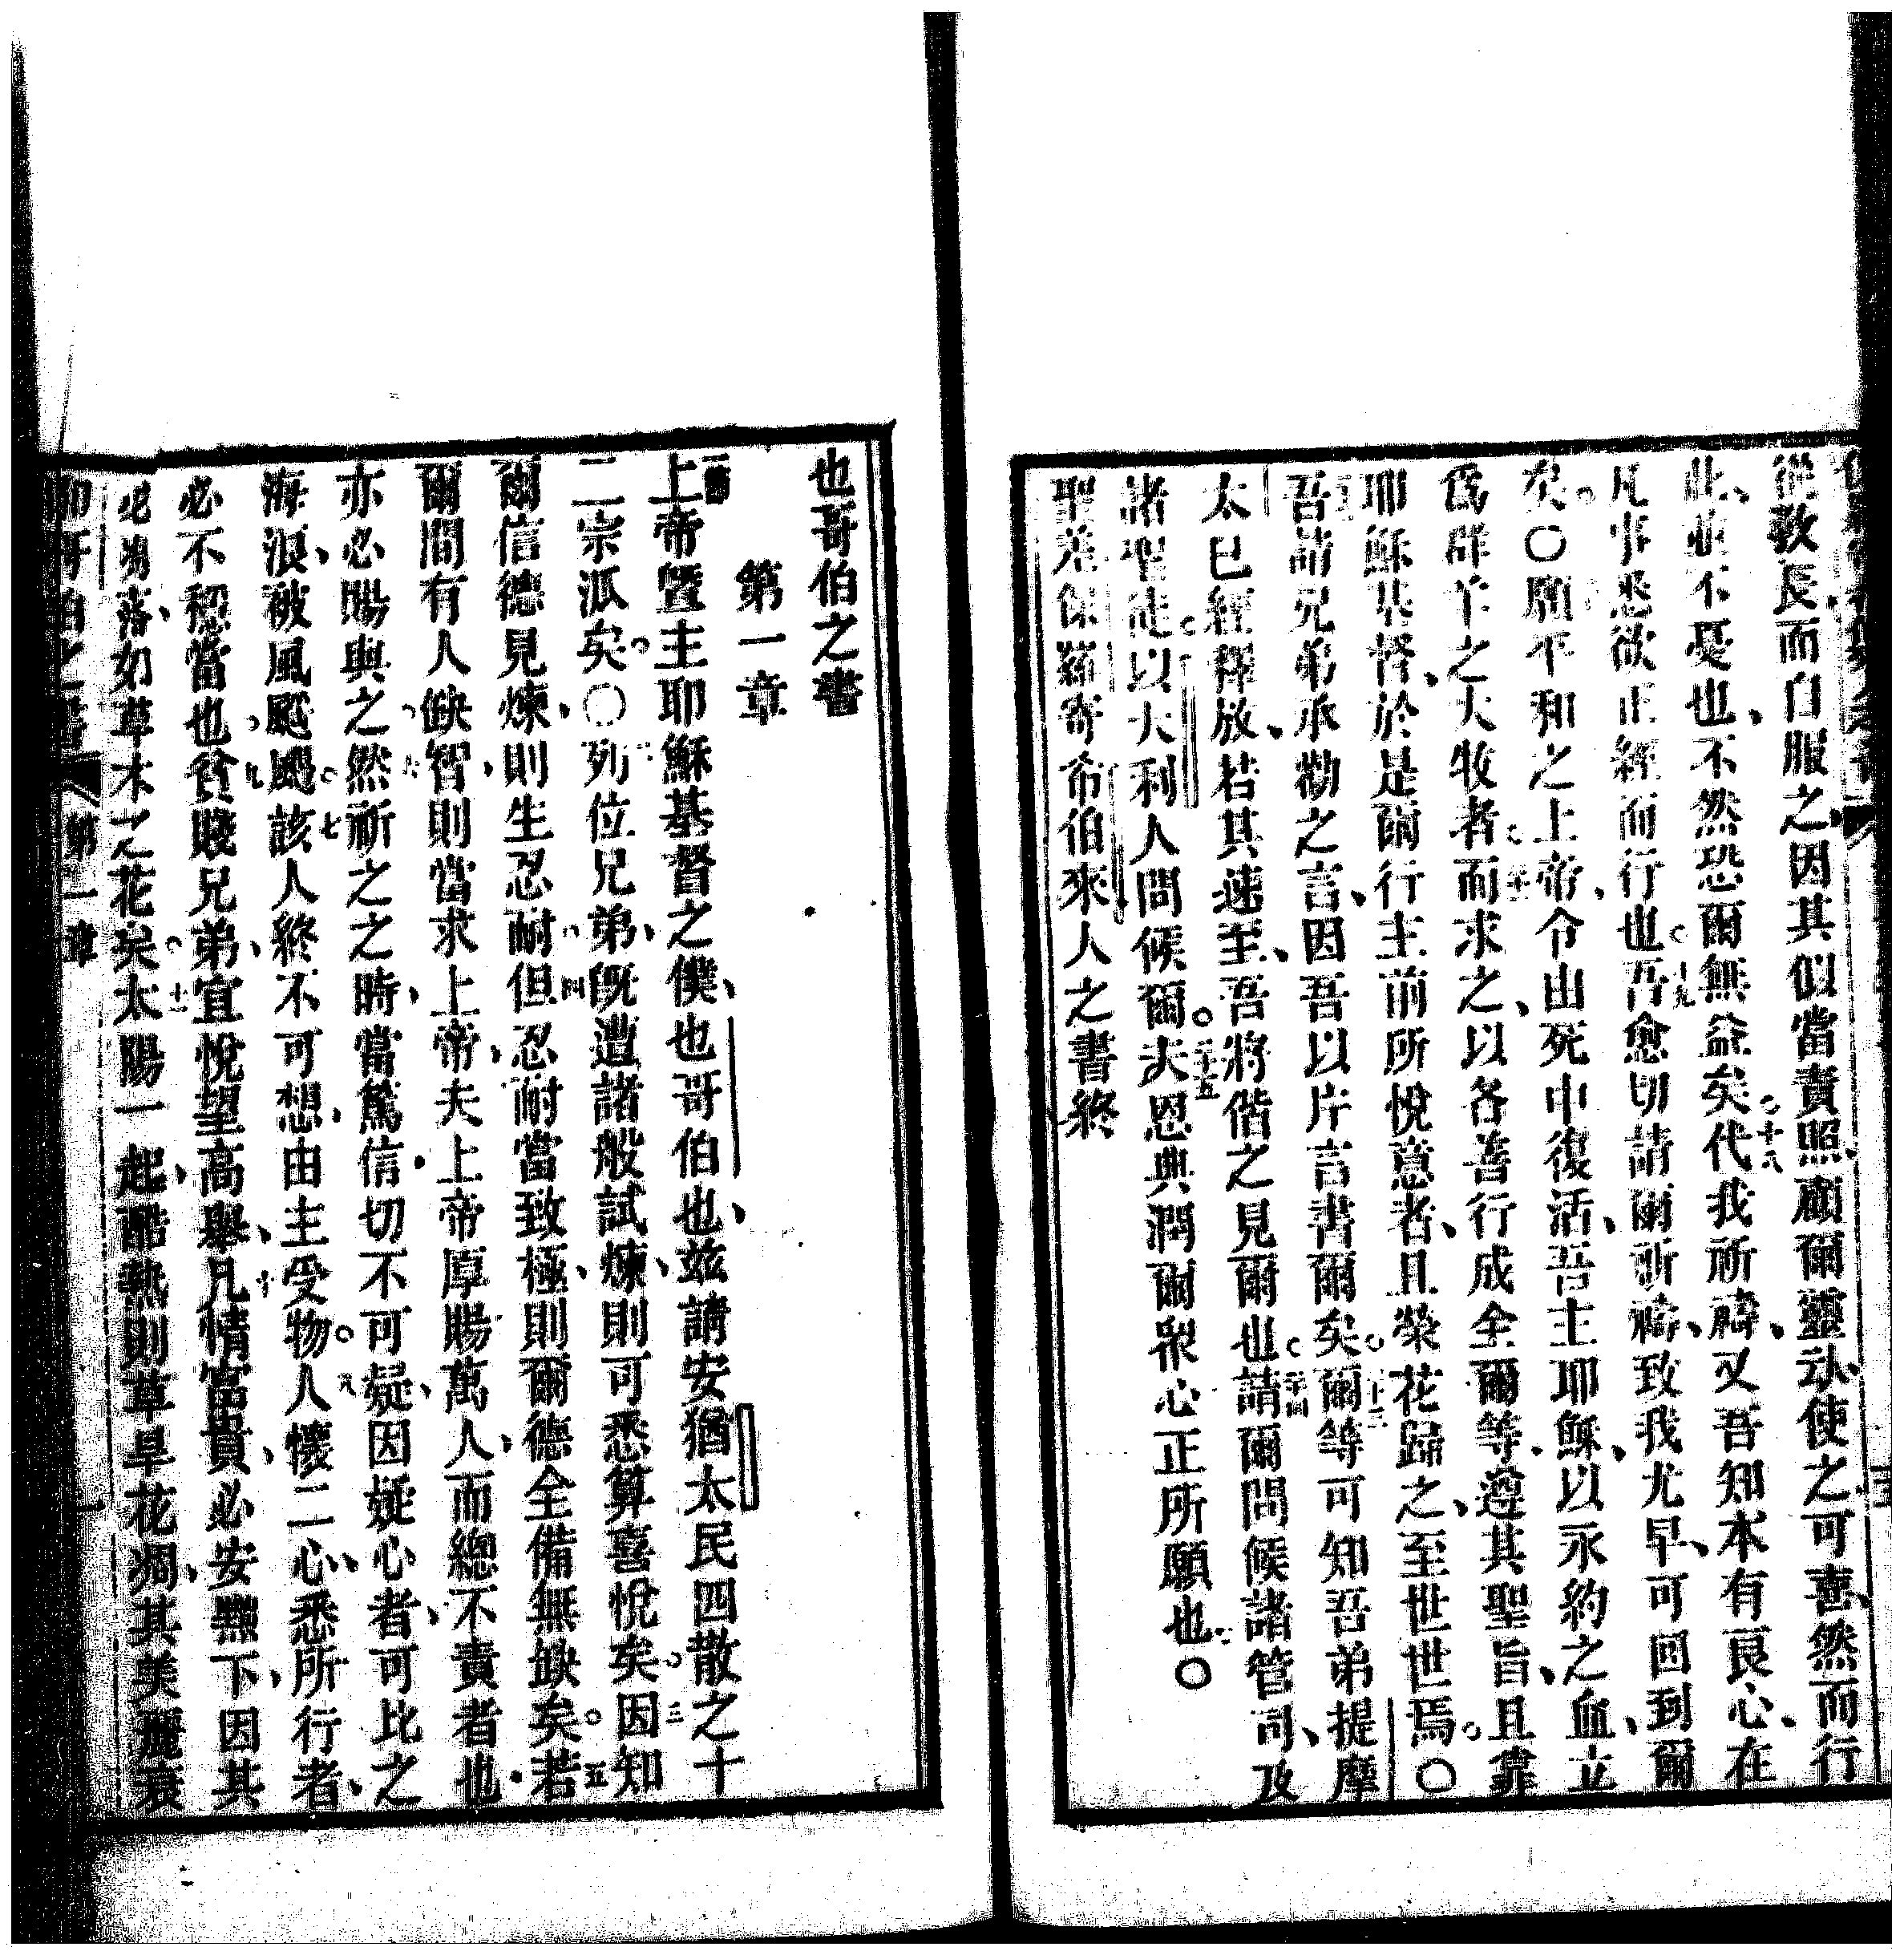 從教長而自服之因其似當責照顧爾靈、永使之可喜然而行
此、並不憂也、不然恐爾無益矣。十八代我祈禱、又吾知本有良心、在
凡事悉欲正經而行也。十九吾愈切請爾祈禱、致我尤早、可回到爾
矣。〇願平和之上帝、令由死中復活、吾主耶穌、以永約之血、立
為群羊之大牧者而求之、以各善行成全爾等、遵其聖旨、且靠
耶穌基督、於是爾行主前所悅意者、且榮花歸之、至世世焉。〇
吾請兄弟承勸之言、因吾以片言書爾矣。爾等可知吾弟提摩
太已經釋放、若其速至、吾將偕之見爾也。二十四請爾問候諸管司、及
諸聖徒。以大利人問候爾。二十五夫恩典潤爾眾心正所願也。〇
聖差保羅寄希伯來人之書終
也哥伯之書
第一章
上帝曁主耶穌基督之僕、也哥伯也、玆請安猶太民四散之十
二宗派矣。〇二列位兄弟、旣遭諸般試煉、則可悉算喜悅矣。三因知
爾信德見煉、則生忍耐。四但忍耐當致極、則爾德全備無缺矣。五若
爾間有人缺智、則當求上帝、夫上帝厚賜萬人、而總不責者也、
亦必賜與之。六然祈之之時、當篤信、切不可疑、因疑心者、可比之
海浪、被風颺颺。七該人終不可想、由主受物。八人懷二心、悉所行者、
必不穩當也。九貧賤兄弟、宜悅望高舉、十凡情富貴、必安黜下、因其
必剪落、如草木之花矣。十一太陽一起、酷熱則草旱花凋、其美麗衰
也哥伯之書 第一章 一